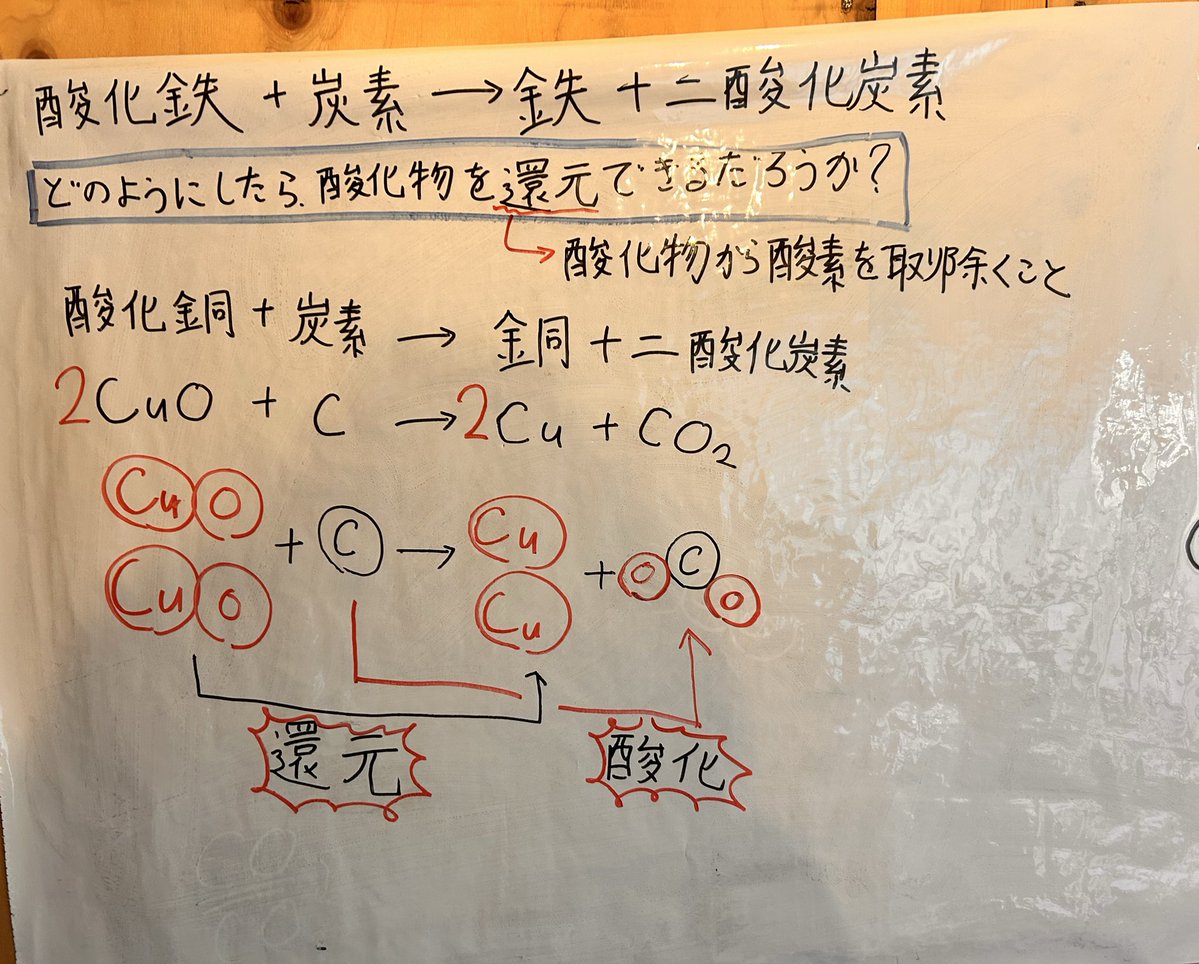 酸化鉄 + 炭素 → 鉄 + 二酸化炭素
どのようにしたら、酸化物を還元できるだろうか?
酸化物から酸素を取り除くこと
酸化銅 + 炭素 → 銅 + 二酸化炭素
2CuO + C → 2Cu + CO₂
Cu O + C → Cu + O C O
Cu O Cu
還元 酸化